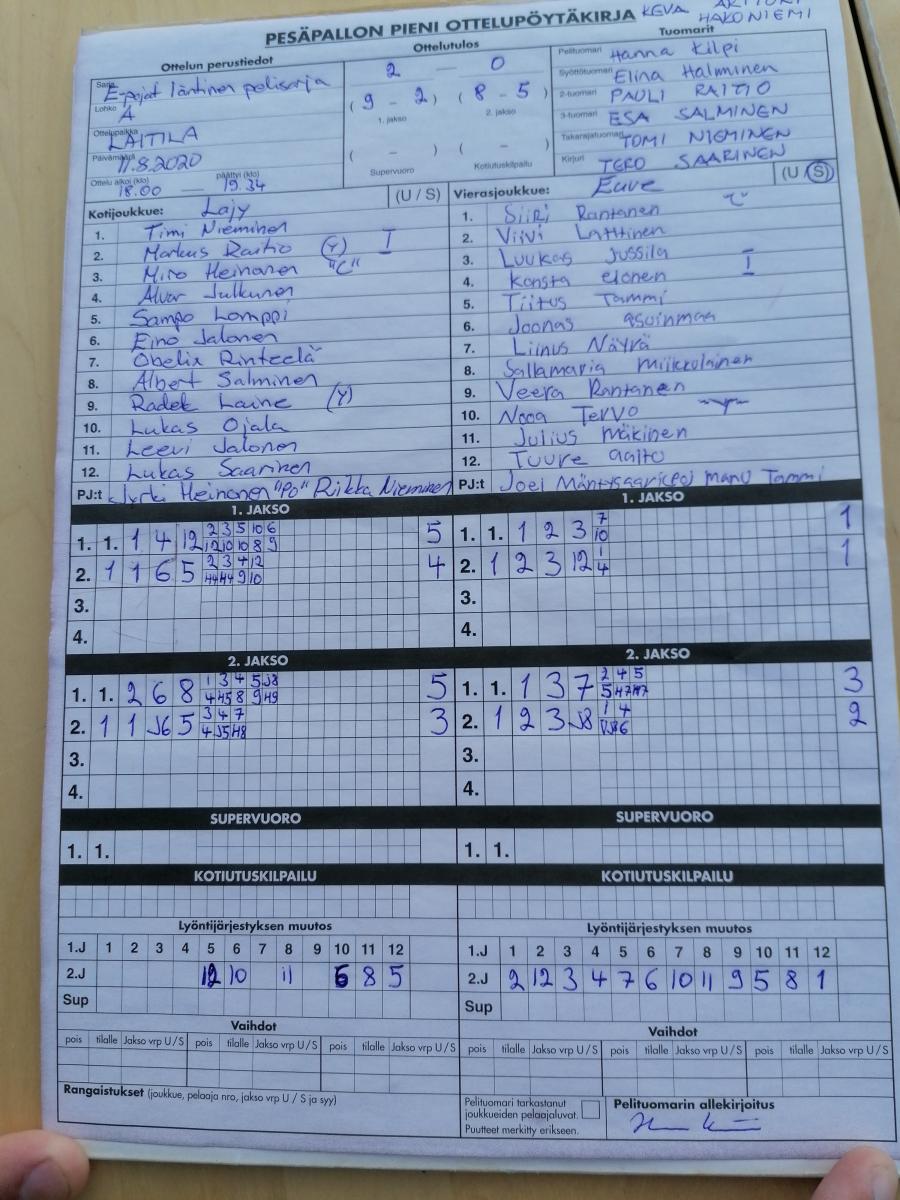 PESÄPALLON PIENI OTTELUPÖYTÄKIRJA KEVA HAKONIEMI
Ottelun perustiedot
Sarja E-pojat läntinen polisarja
Lohko A
Ottelupaikka LAITILA
Päivämäärä 11.8.2020
Ottelu alkoi (klo) päättyi (klo)
18.00 — 19.34
Ottelutulos
2 — 0
(9 - 2) (8 - 5)
1. jakso 2. jakso
( - ) ( - )
Supervuoro Kotiutuskilpailu
Tuomarit
Pelituomari Hanna Kilpi
Syöttötuomari Elina Halminen
2-tuomari PAULI RAITIO
3-tuomari ESA SALMINEN
Takarajatuomari TOMI NIEMINEN
Kirjuri TERO SAARINEN
Kotijoukkue: Lajy (U / S)
1. Timi Nieminen
2. Markus Raitio (Y) I
3. Miro Heinonen "C"
4. Alvar Julkunen
5. Sampo Lomppi
6. Eino Jalonen
7. Obelix Rinteelä
8. Albert Salminen
9. Radek Laine (Y)
10. Lukas Ojala
11. Leevi Jalonen
12. Lukas Saarinen
PJ:t Jyrki Heinonen "PO" Riikka Nieminen
Vierasjoukkue: Eure (U / S)
1. Siiri Rantanen "C"
2. Viivi Lattinen
3. Luukas Jussila
4. Konsta elonen I
5. Tiitus Tammi
6. Joonas asuinmaa
7. Liinus Näyrä
8. Sallamaria Miikkolainen
9. Veera Rantanen
10. Nooa Tervo
11. Julius Mäkinen
12. Tuure aalto
PJ:t Joel Manu Tammi
1. JAKSO
1. 1. 1 4 12 2 3 5 10 6 5
12 10 10 8 9
2. 1 1 6 5 2 3 4 12 4
9 10
3.
4.
1. JAKSO
1. 1. 1 2 3 7 1
10
2. 1 2 3 12 1 1
4
3.
4.
2. JAKSO
1. 1. 2 6 8 1 3 4 5 J8 5
4 H5 8 9 H9
2. 1 1 J6 5 3 4 7 3
4 J5 H8
3.
4.
2. JAKSO
1. 1. 1 3 7 2 4 5 3
5 H7 H7
2. 1 2 3 J8 1 4 2
3.
4.
SUPERVUORO
1. 1.
SUPERVUORO
1. 1.
KOTIUTUSKILPAILU
KOTIUTUSKILPAILU
Lyöntijärjestyksen muutos
1.J 1 2 3 4 5 6 7 8 9 10 11 12
2.J 12 10 11 6 8 5
Sup
Lyöntijärjestyksen muutos
1.J 1 2 3 4 5 6 7 8 9 10 11 12
2.J 2 12 3 4 7 6 10 11 9 5 8 1
Sup
Vaihdot
pois tilalle Jakso vrp U / S pois tilalle Jakso vrp U / S pois tilalle Jakso vrp U / S
Vaihdot
pois tilalle Jakso vrp U / S pois tilalle Jakso vrp U / S pois tilalle Jakso vrp U / S
Rangaistukset (joukkue, pelaaja nro, jakso vrp U / S ja syy)
Pelituomari tarkastanut
joukkueiden pelaajaluvat.
Puutteet merkitty erikseen.
Pelituomarin allekirjoitus